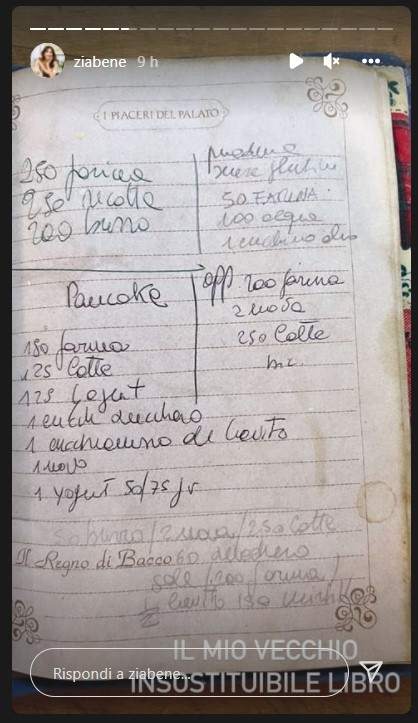 ziabene 9 h
I PIACERI DEL PALATO
250 farina
250 ricotta
200 burro
senza glutine
50 FARINA
100 acqua
1 cucchiaino olio
Pancake
180 farina
125 latte
125 yogurt
1 cucch zucchero
1 cucchiaino de lievito
1 uovo
1 yogurt 50/75 gr
opp 200 farina
2 uova
250 latte
50 burro / 2 uova / 250 latte
Il Regno di Bacco 60 zucchero
sale / 200 farina /
½ lievito
IL MIO VECCHIO
INSOSTITUIBILE LIBRO
Rispondi a ziabene...